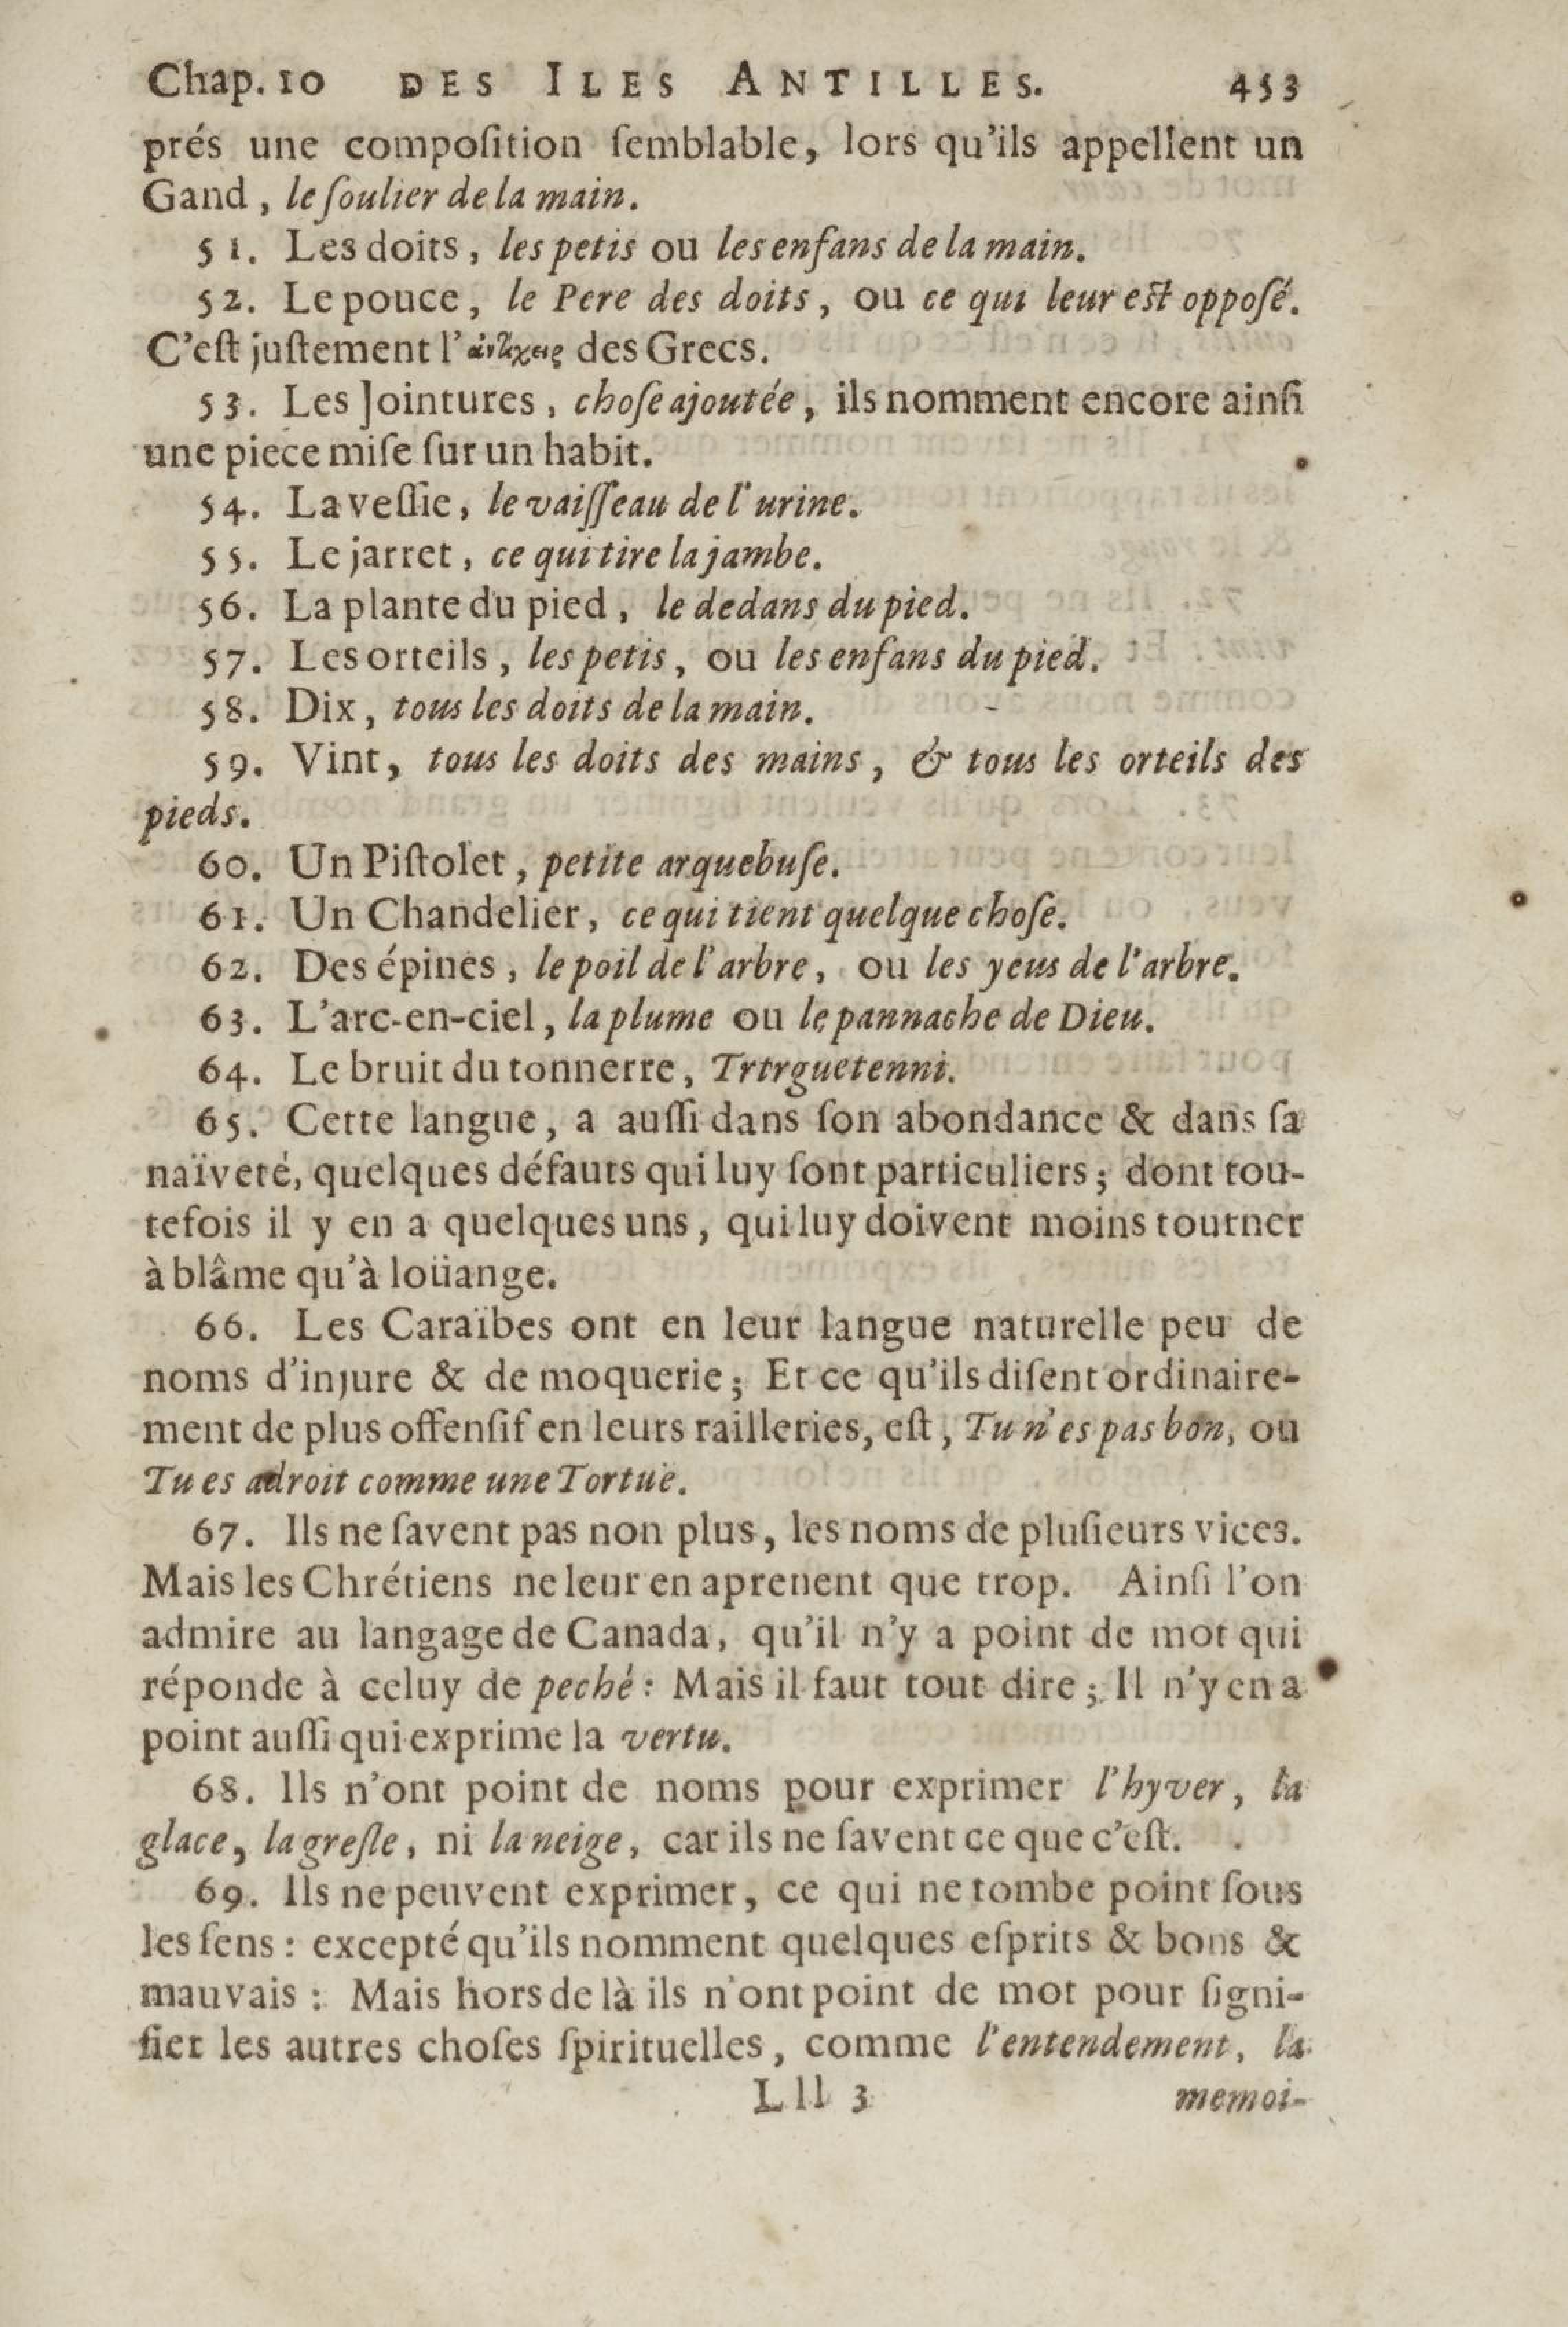 Chap. 10 DES ILES ANTILLES. 453
prés une compoſition ſemblable, lors qu'ils appellent un
Gand, le ſoulier de la main.
51. Les doits, les petis ou les enfans de la main.
52. Le pouce, le Pere des doits, ou ce qui leur est oppoſé.
C'eſt juſtement l' des Grecs.
53. Les Jointures, choſe ajoutée, ils nomment encore ainſi
une piece miſe ſur un habit.
54. La veſſie, le vaiſſeau de l'urine.
55. Le jarret, ce qui tire la jambe.
56. La plante du pied, le dedans du pied.
57. Les orteils, les petis, ou les enfans du pied.
58. Dix, tous les doits de la main.
59. Vint, tous les doits des mains, & tous les orteils des
pieds.
60. Un Piſtolet, petite arquebuſe.
61. Un Chandelier, ce qui tient quelque choſe.
62. Des épines, le poil de l'arbre, ou les yeus de l'arbre.
63. L'arc-en-ciel, la plume ou le pannache de Dieu.
64. Le bruit du tonnerre, Trtrguetenni.
65. Cette langue, a auſſi dans ſon abondance & dans ſa
naïveté, quelques défauts qui luy ſont particuliers; dont tou-
tefois il y en a quelques uns, qui luy doivent moins tourner
à blâme qu'à loüange.
66. Les Caraïbes ont en leur langue naturelle peu de
noms d'injure & de moquerie; Et ce qu'ils diſent ordinaire-
ment de plus offenſif en leurs railleries, eſt, Tu n'es pas bon, ou
Tu es adroit comme une Tortuë.
67. Ils ne ſavent pas non plus, les noms de pluſieurs vices.
Mais les Chrétiens ne leur en aprenent que trop. Ainſi l'on
admire au langage de Canada, qu'il n'y a point de mot qui
réponde à celuy de peché: Mais il faut tout dire; Il n'y en a
point auſſi qui exprime la vertu.
68. Ils n'ont point de noms pour exprimer l'hyver, la
glace, la greſle, ni la neige, car ils ne ſavent ce que c'eſt.
69. Ils ne peuvent exprimer, ce qui ne tombe point ſous
les ſens: excepté qu'ils nomment quelques eſprits & bons &
mauvais: Mais hors de là ils n'ont point de mot pour ſigni-
fier les autres choſes ſpirituelles, comme l'entendement, la
Lll 3 memoi-